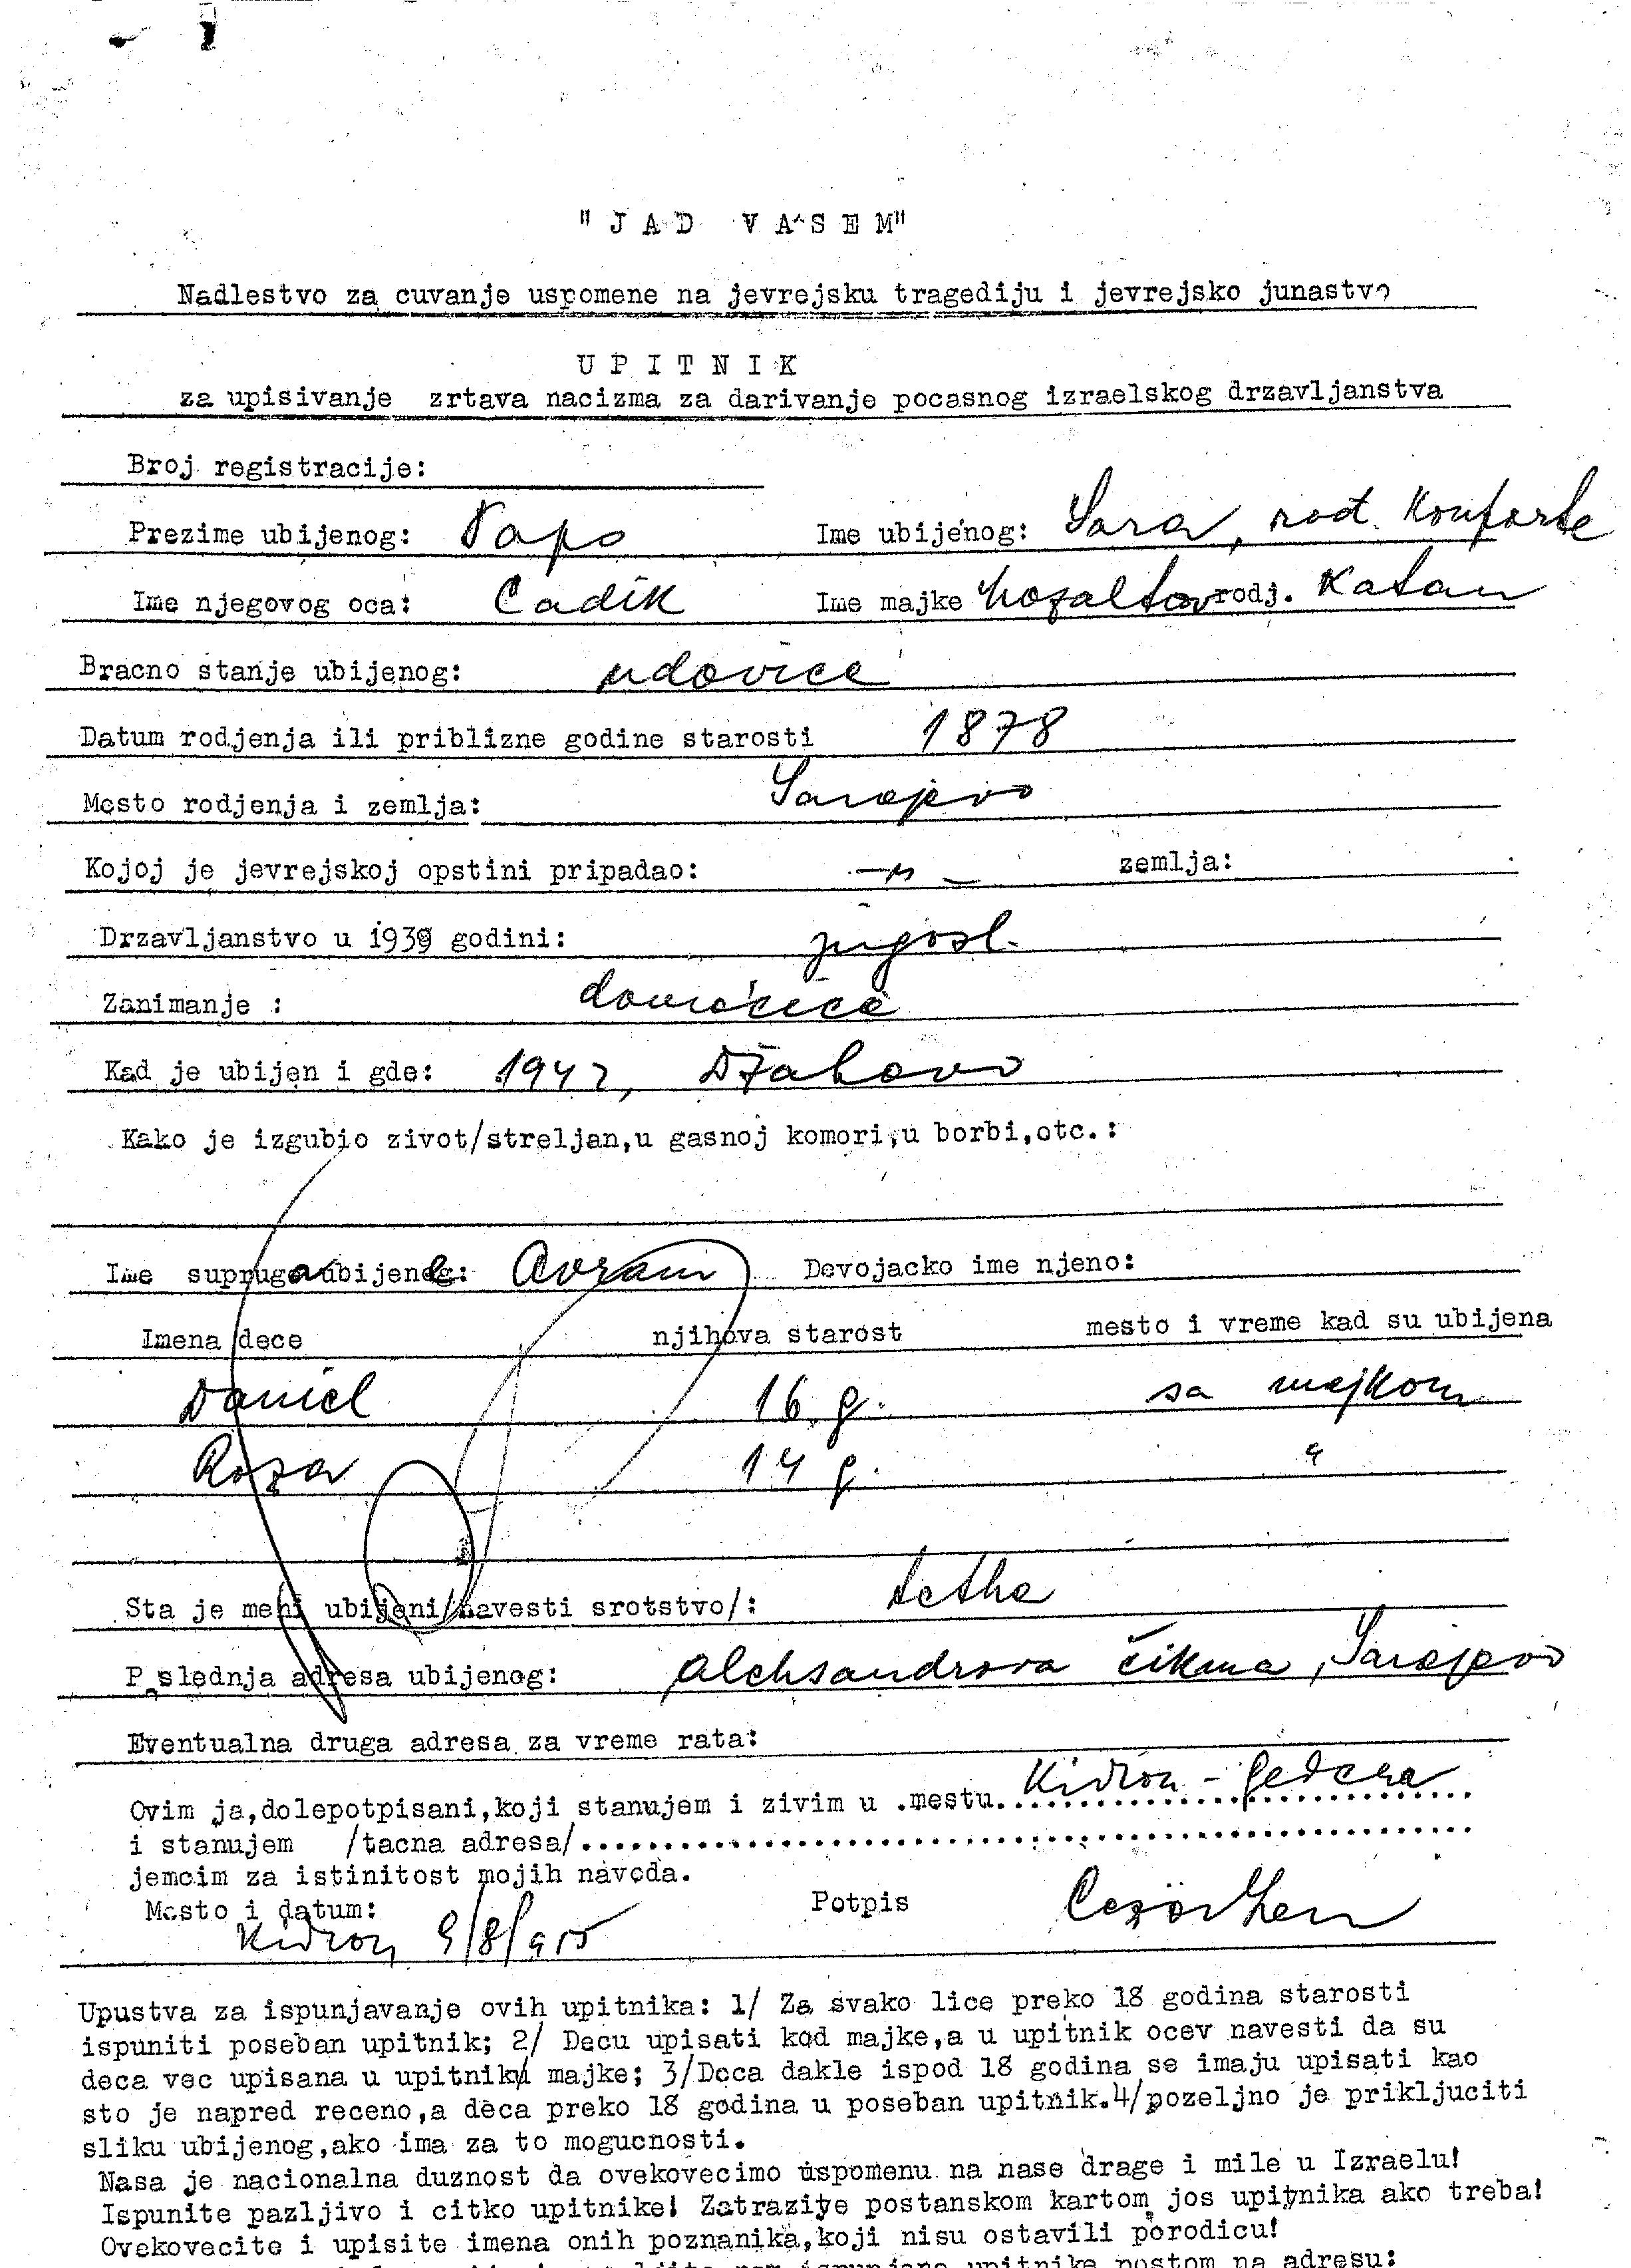 "JAD VAŠEM"
Nadlestvo za cuvanje uspomene na jevrejsku tragediju i jevrejsko junastvo
UPITNIK
za upisivanje zrtava nacizma za darivanje pocasnog izraelskog drzavljanstva
Broj registracije:
Prezime ubijenog: Papo Ime ubijenog: Sara, rođ. Konforte
Ime njegovog oca: Cadik Ime majke rodj. Katan
Bracno stanje ubijenog: udovice
Datum rodjenja ili priblizne godine starosti 1878
Mesto rodjenja i zemlja: Sarajevo
Kojoj je jevrejskoj opstini pripadao: -"- zemlja:
Drzavljanstvo u 1939 godini: jugosl.
Zanimanje : domaćice
Kad je ubijen i gde: 1942, Džakovo
Kako je izgubio zivot/streljan,u gasnoj komori,u borbi,etc.:
Ime supruga ubijene: Avram Devojacko ime njeno:
Imena dece njihova starost mesto i vreme kad su ubijena
Daniel 16 g. sa majkom
Roza 14 g. "
Sta je meni ubijeni/navesti srotstvo/: tetka
P slednja adresa ubijenog: Aleksandrova čikma, Sarajevo
Eventualna druga adresa za vreme rata:
Ovim ja,dolepotpisani,koji stanujem i zivim u .mestu. Kidron - Gedera
i stanujem /tacna adresa/
jemcim za istinitost mojih navoda.
Mesto i datum: Potpis
Kidron 9/8/955
Upustva za ispunjavanje ovih upitnika: 1/ Za svako lice preko 18 godina starosti
ispuniti poseban upitnik; 2/ Decu upisati kod majke,a u upitnik ocev navesti da su
deca vec upisana u upitniku majke; 3/Deca dakle ispod 18 godina se imaju upisati kao
sto je napred receno,a deca preko 18 godina u poseban upitnik.4/pozeljno je prikljuciti
sliku ubijenog,ako ima za to mogucnosti.
Nasa je nacionalna duznost da ovekovecimo uspomenu na nase drage i mile u Izraelu!
Ispunite pazljivo i citko upitnike! Zatrazite postanskom kartom jos upitnika ako treba!
Ovekovecite i upisite imena onih poznanika,koji nisu ostavili porodicu!
upitnike postom na adresu: